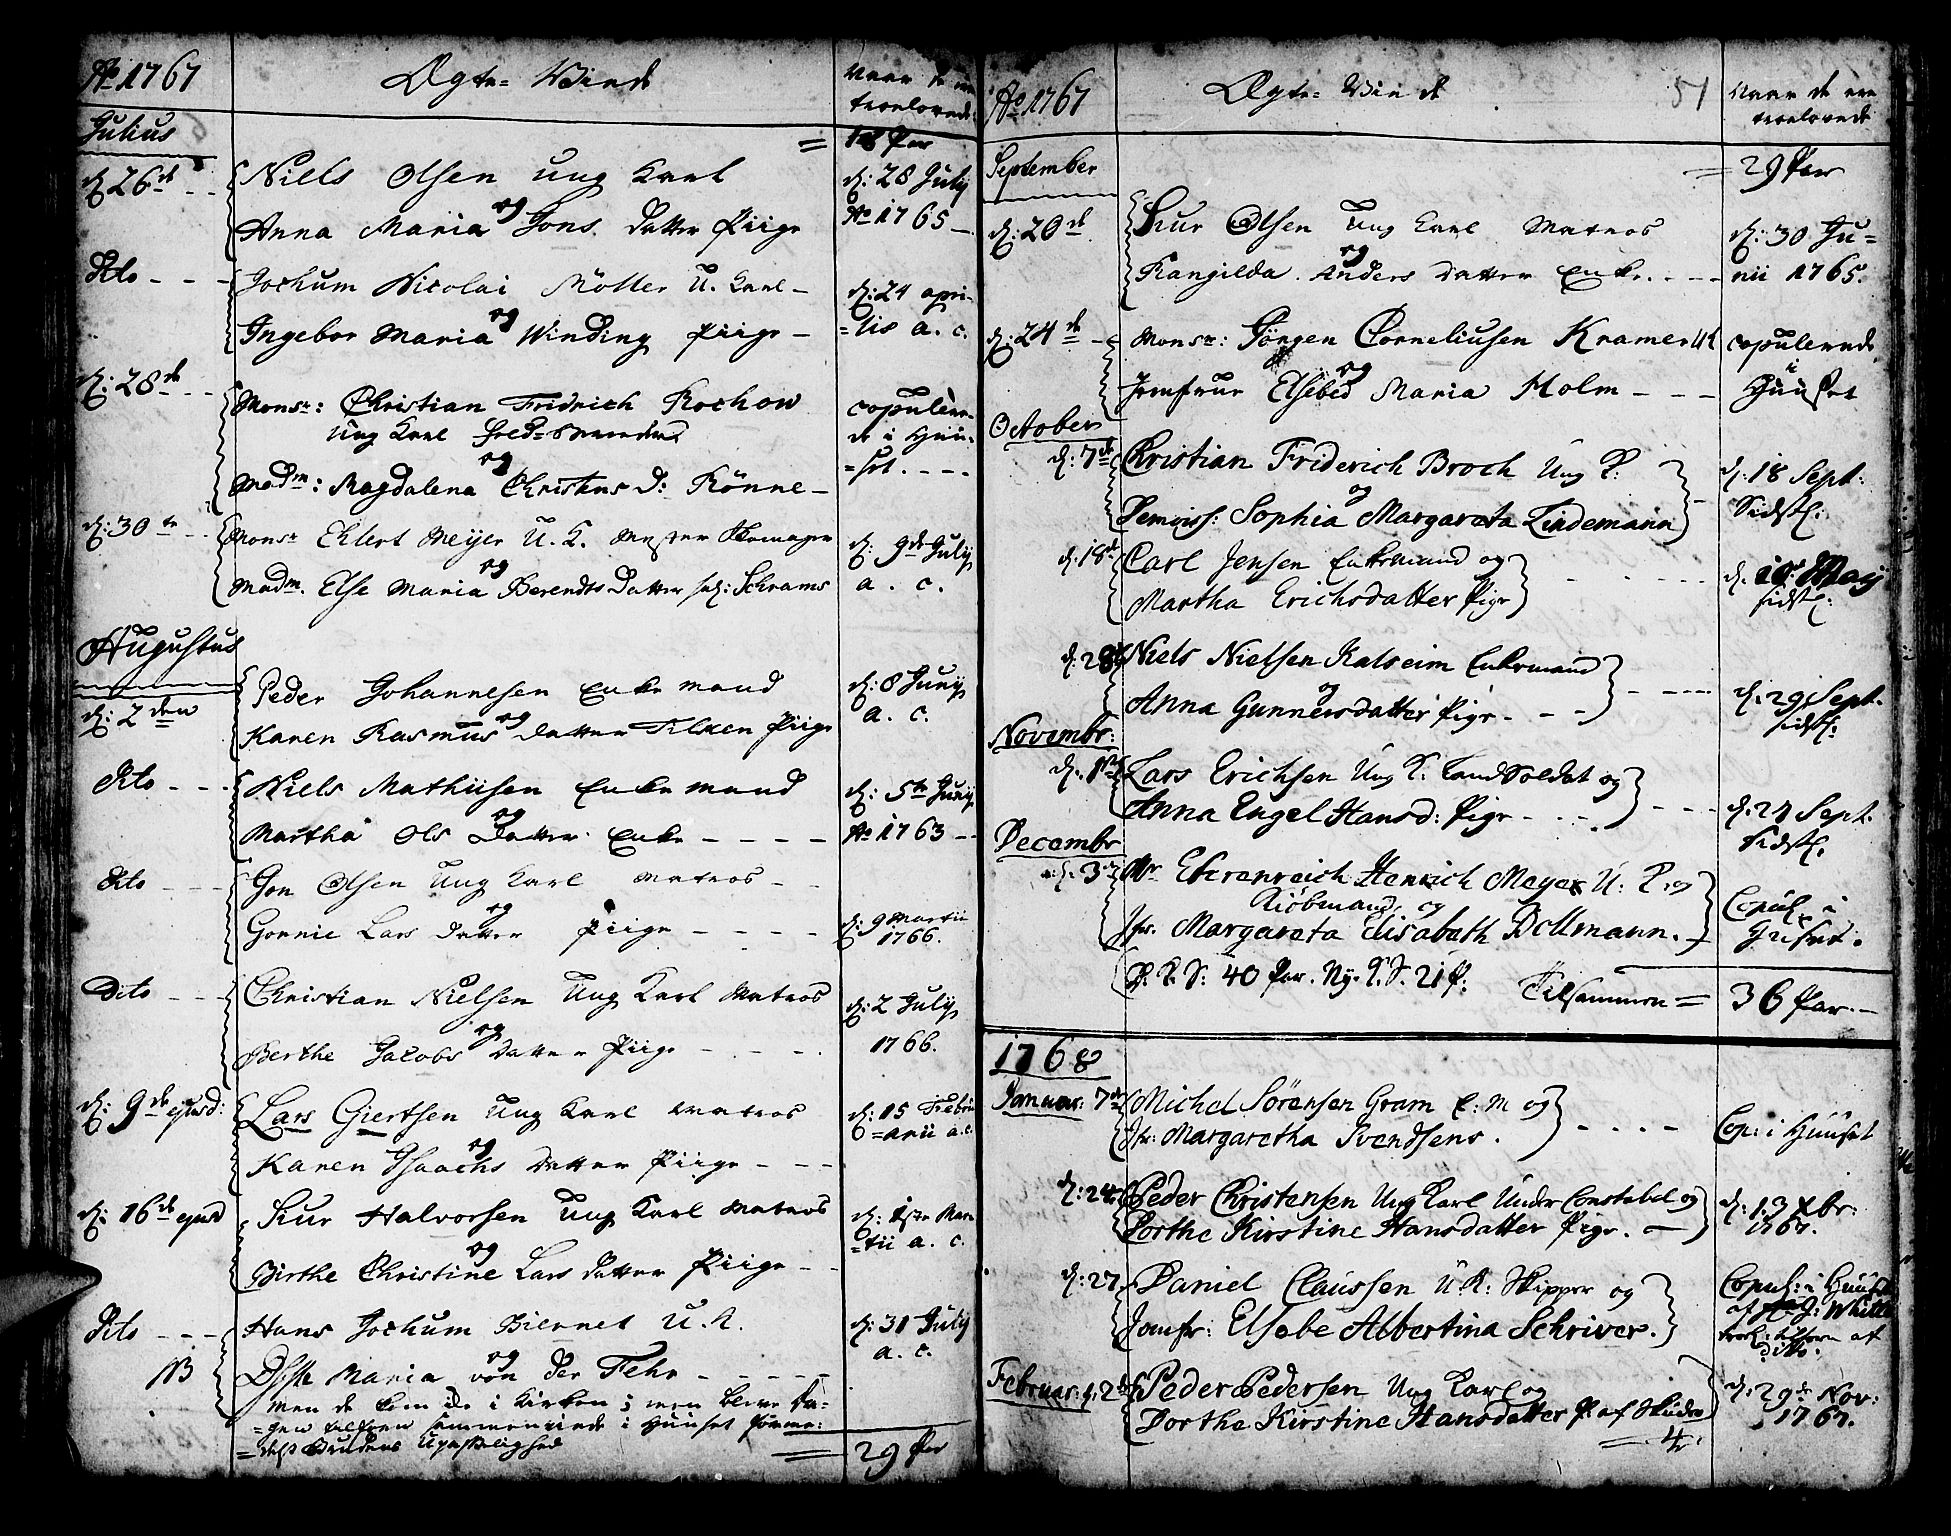 Ao 1767
Ægte-Viede
Naar de ere
troelovede
Julius
= 18 Par
d: 26de - -
Niels Olsen Ung Karl
og
Anna Maria Jons Datter Piige
d: 28 July
Ao 1765 -
Dito - - -
Jochum Nicolai Möller U. Karl -
og
Ingebor Maria Winding Piige -
d: 24 apri-
=lis a. c.
d: 28de - -
Monsr: Christian Fridrich Rochow
Ung Karl
og
Madm: Magdalena Christens D: Rönne -
copuleere-
de i Huu-
=set. - - -
d: 30te - -
Monsr Ehlert Meyer U. K. Mester
og
Madm. Else Maria Berendts Datter sal: Schrams
d: 9de July
a. c.
Augustus
d: 2den
Peder Johannesen Enke mand
og
Karen Rasmus Datter Piige
d: 8 Juny
a. c.
Dito - - -
Niels Mathiisen Enke mand
og
Martha Ols Datter Enke - - - -
d: 5te Juny
Ao 1763 - -
Dito - - -
Jon Olsen Ung Karl Matros - -
og
Gonnie Lars Datter Piige - - - -
d: 9 Martii
1766.
Dito - - -
Christian Nielsen Ung Karl Matros
og
Berthe Jacobs Datter Piige - - -
d: 2 July
1766.
d: 9de ejusd:
Lars Giertsen Ung Karl Matros
og
Karen Isaachs Datter Piige - - -
d: 15 Febru
=arii a. c.
d: 16de ejusd
Siur Halvorsen Ung Karl Matros
og
Birthe Christine Lars Datter Piige - -
d: 1ste Mar-
=tii a. c.
Dito - - -
NB
Hans Jochum Biernet U. K.
og
Maria von der Fehr - - - - -
men de kom ide i Kirken; men bleve Da-
=gen sammenviede i Huuset
Brudens Upasselighed
d: 31 July
a. c.
= 29 Par
Ao 1767
Ægte-Viede
51
Naar de ere
troelovede
September
= 29 Par
d: 20de
Siur Olsen Ung Karl Matros
og
Rangilda Anders Datter Enke. - - -
d: 30 Ju=
nii 1765.
d: 24de -
Monsr: Jörgen Corneliusen Kramer UK
og
Jomfrue Elsebed Maria Holm - - -
copuleerede
i
Huuset
October
d: 7de
Christian Friderich Broch Ung K:
og
Demoiss: Sophia Margareta Lindemann
d: 18 Sept:
Sidstl:
d: 18de
Carl Jensen Enkemand og
Martha Erichsdatter Pige
d. May
sidstl:
d: 28
Niels Nielsen Kalseim Enkemand
og
Anna Gunnersdatter Pige - - -
d. 29 Sept.
sidstl:
Novembr:
d: 1ste
Lars Erichsen Ung K: Landsoldat og
Anna Engel Hansd: Pige - - -
d. 27 Sept.
Sidstl.
Decembr
d. 3de
Mr Ehrenreich Henrich Meyer U: K. og
Kiöbmand og
Jfr. Margareta Elisabeth Dollmann.
Copul: i
Huset.
D. K. S: 40 Par. Ny. K. S. 21 P:
Tilsammen = 36 Par. -
1768
Januar: 7de
Michel Sörensen Gram E: M og
Jfr: Margaretha Svendsens. - - - -
Cop: i Huuset
d: 24
Peder Christensen Ung Karl Under Constabel og
Dorthe Kirstine Hansdatter Pige. -
d: 13 Xbr:
1767.
d: 27
Daniel Claussen U: K: Skipper og
Jomfr: Elsebe Albertina Schriver.
Copul: i Huuset
af J: Whitte
af
ditto.
Februar. d. 2de
Peder Pedersen Ung Karl og
Dorthe Kirstine Hansdatter P af Skuden
4
d: 29de Nov:
1767.